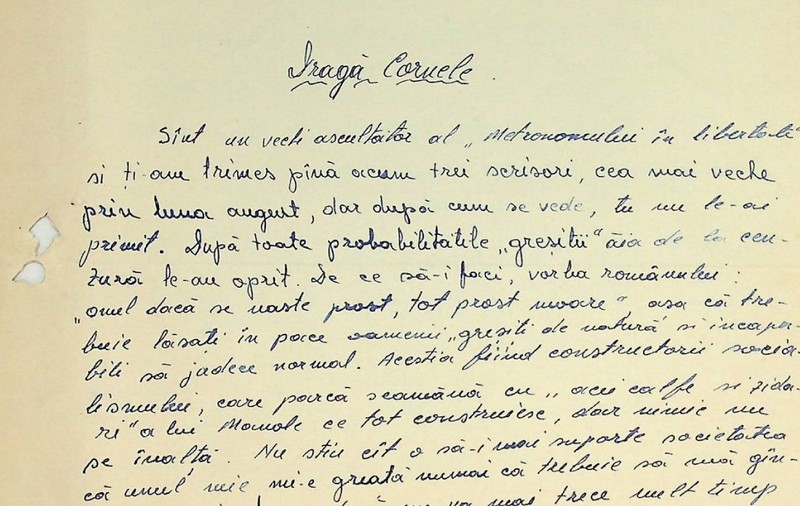 Dragă Cornele.
Sînt un vechi ascultător al „Metronomului în libertate"
si ți-am trimes pînă acum trei scrisori, cea mai veche
prin luna august, dar după cum se vede, tu nu le-ai
primit. După toate probabilitățile „gresiții" ăia de la cen-
zură le-au oprit. De ce să-i faci, vorba românului:
„omul dacă se naste prost, tot prost moare", asa că tre-
buie lăsati în pace oamenii „gresiti de natură" si incapa-
bili să judece normal. Acestia fiind constructorii socia-
lismului, care parcă seamănă cu „acii calfe si zida-
ri" a lui Manole ce tot construiesc, dar nimic nu
se înalță. Nu stiu cît o să-i mai suporte societatea
că unul mie mi-e greată numai că trebuie să mă gîn-
va mai trece mult timp